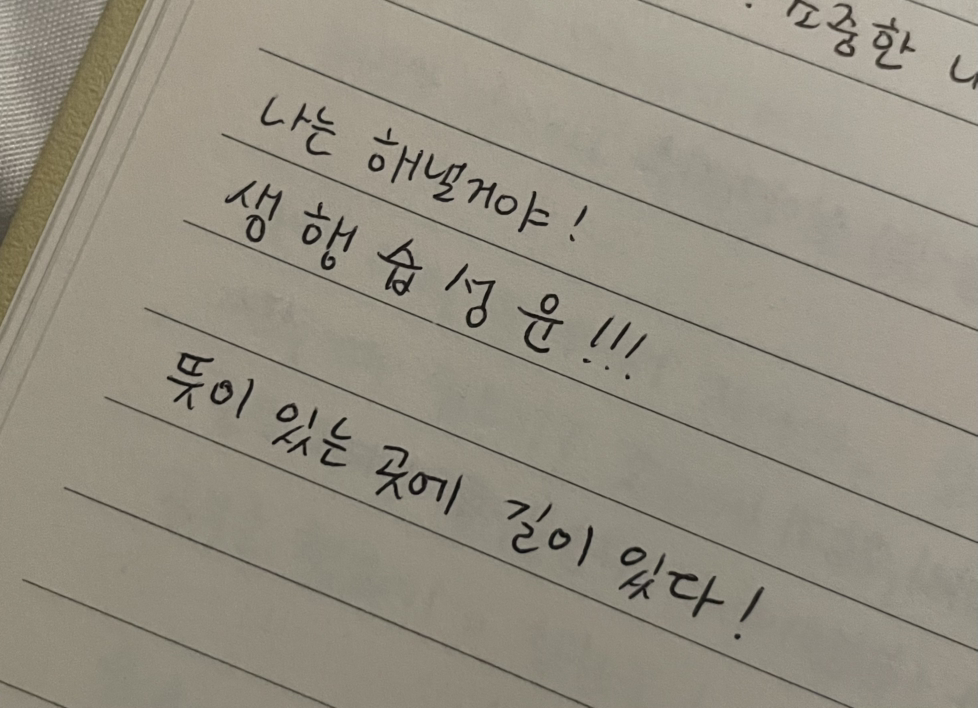 소중한 나
나는 해낼거야!
생 행 습 성 운!!!
뜻이 있는 곳에 길이 있다!